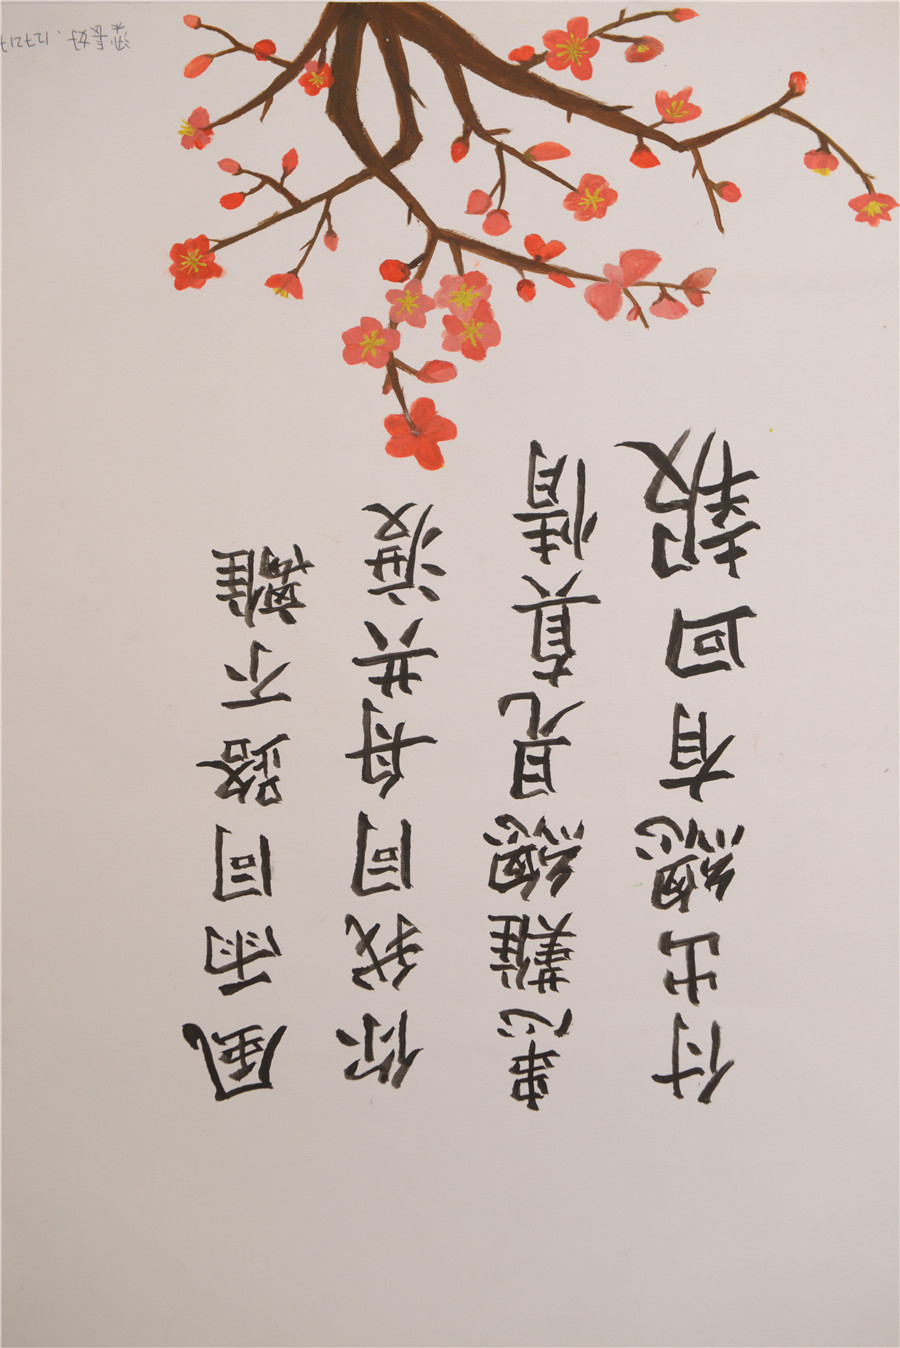 風雨同路不離
你我同舟共渡
患難總見真情
付出總有回報